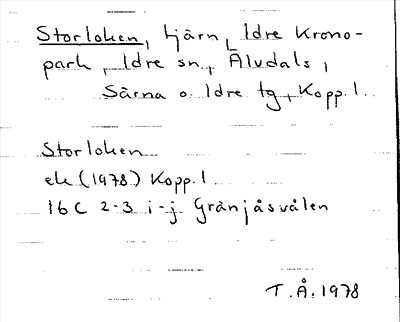 Storloken, tjärn, Idre Krono-
park, Idre sn., Älvdals,
Särna o. Idre tg, Kopp.l.
Storloken
ek (1978) Kopp.l
16C 2-3 i-j Gränjåsvålen
T.Å. 1978